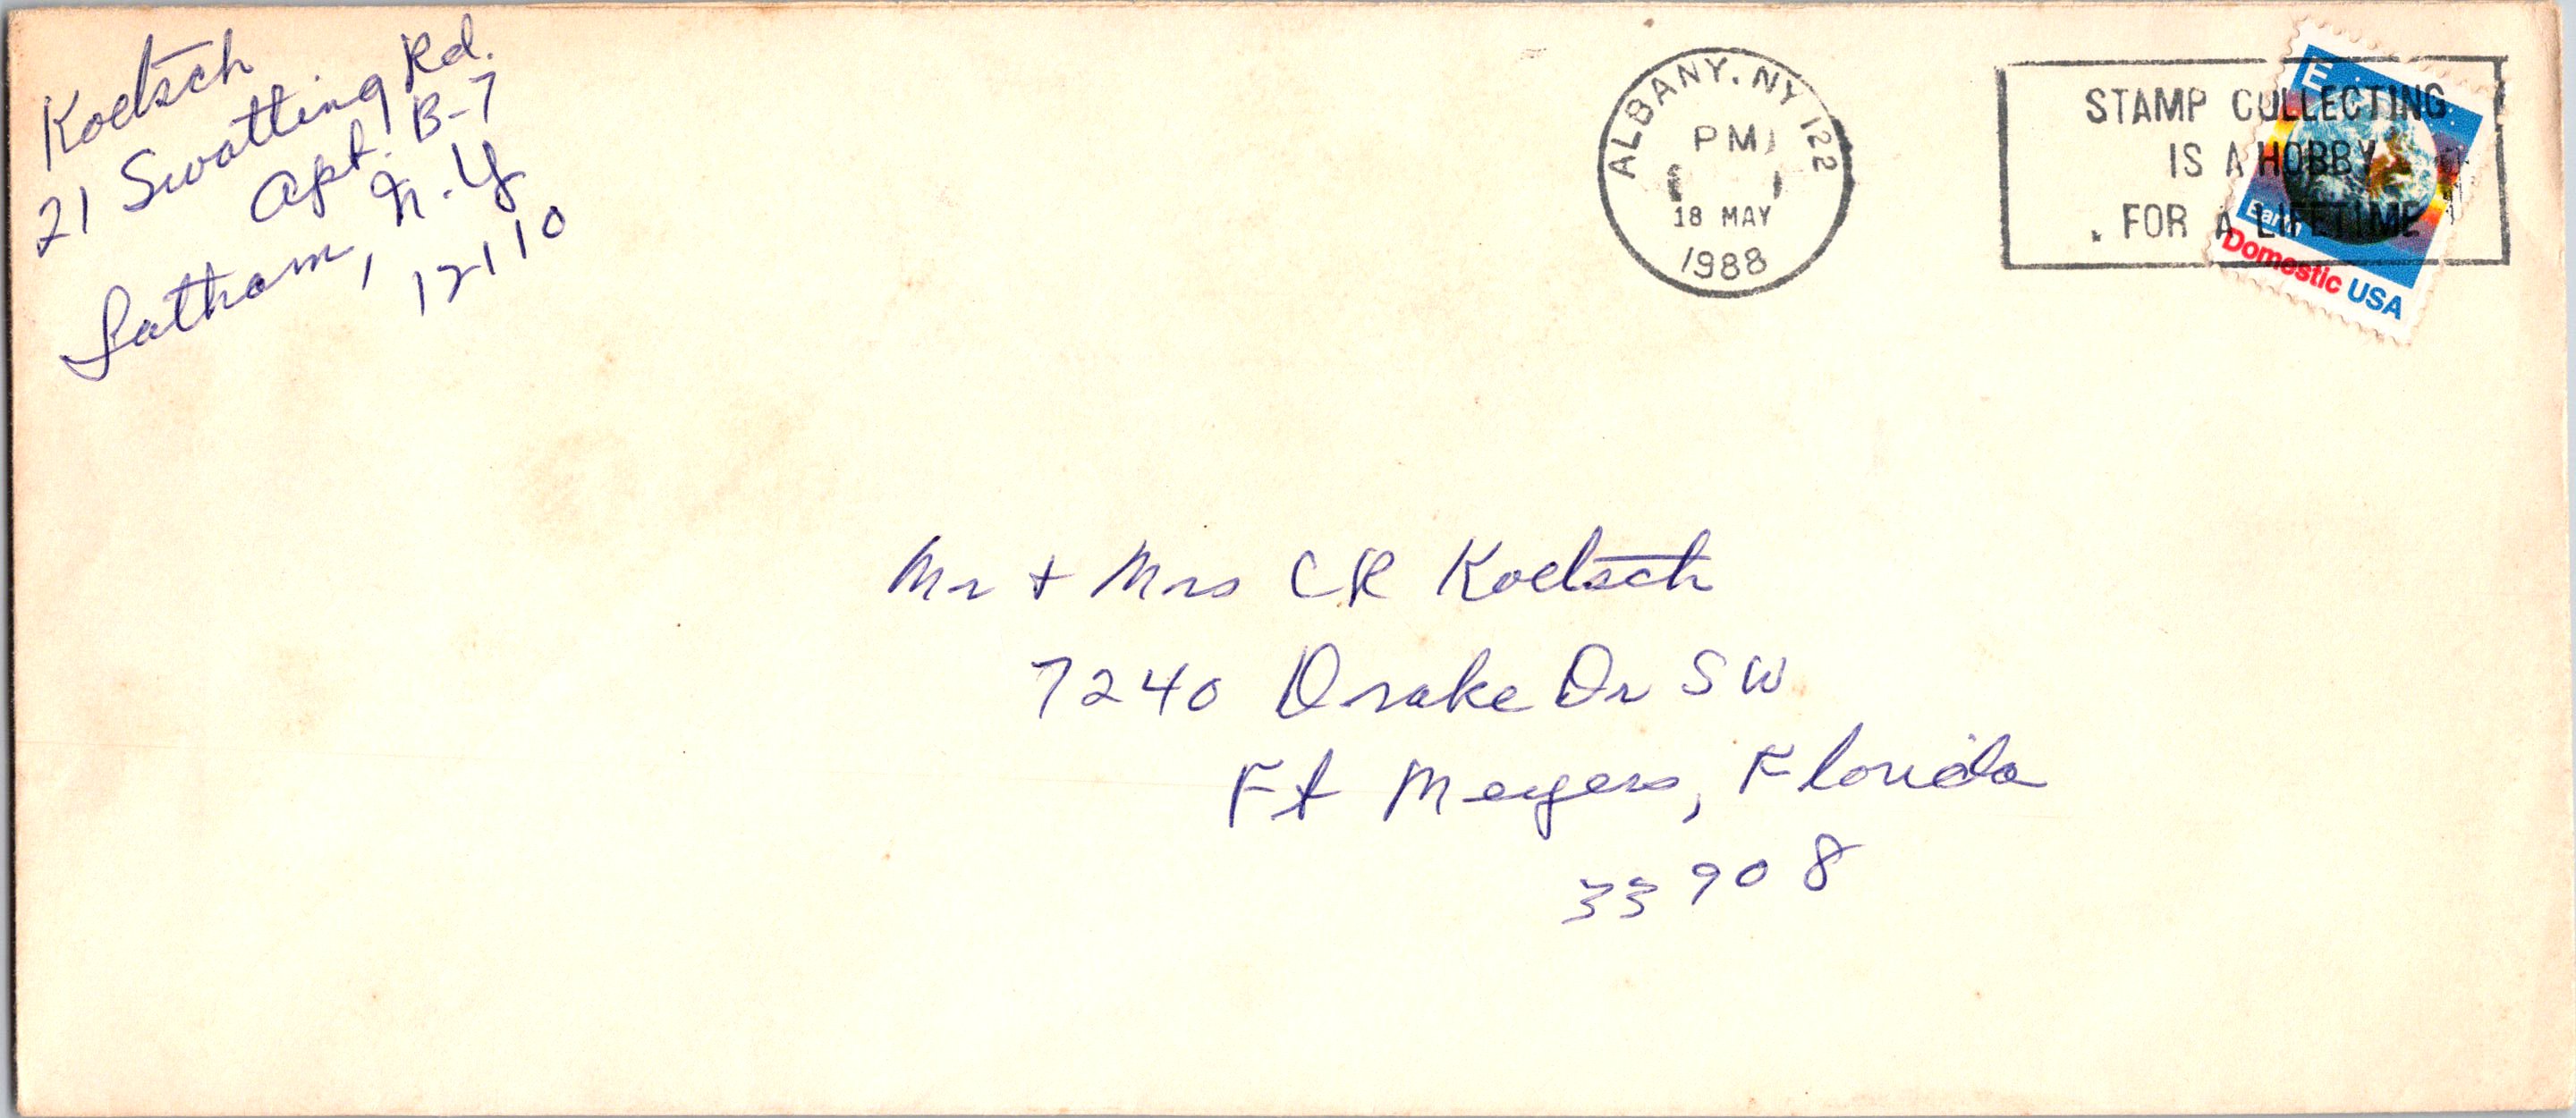 Koetsch
21 Swatling Rd.
Apt. B-7
Latham, N.Y
12110
ALBANY, NY 122
PM
18 MAY
1988
STAMP COLLECTING
IS A HOBBY
FOR A LIFETIME
E
Earth
Domestic USA
Mr + Mrs CR Koetsch
7240 Drake Dr SW
Ft Meyers, Florida
33908